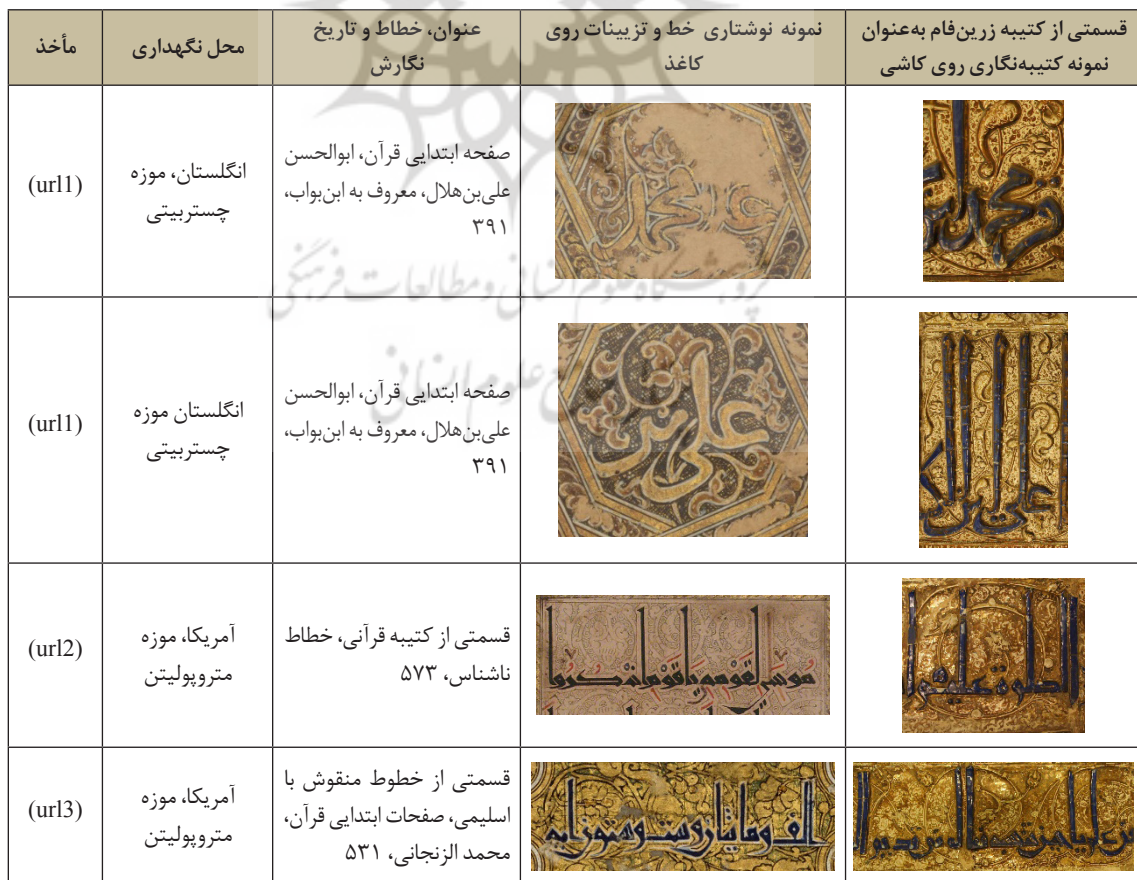 قسمتی از کتیبه زرین‌فام به‌عنوان
نمونه کتیبه‌نگاری روی کاشی
نمونه نوشتاری خط و تزیینات روی
کاغذ
عنوان، خطاط و تاریخ
نگارش
محل نگهداری
مأخذ
صفحه ابتدایی قرآن، ابوالحسن
علی‌بن‌هلال، معروف به ابن‌بواب،
۳۹۱
انگلستان، موزه
چستربیتی
(url1)
علی بن
صفحه ابتدایی قرآن، ابوالحسن
علی‌بن‌هلال، معروف به ابن‌بواب،
۳۹۱
انگلستان موزه
چستربیتی
(url1)
قسمتی از کتیبه قرآنی، خطاط
ناشناس، ۵۷۳
آمریکا، موزه
متروپولیتن
(url2)
قسمتی از خطوط منقوش با
اسلیمی، صفحات ابتدایی قرآن،
محمد الزنجانی، ۵۳۱
آمریکا، موزه
متروپولیتن
(url3)
پژوهشگاه علوم انسانی و مطالعات فرهنگی
علوم انسانی